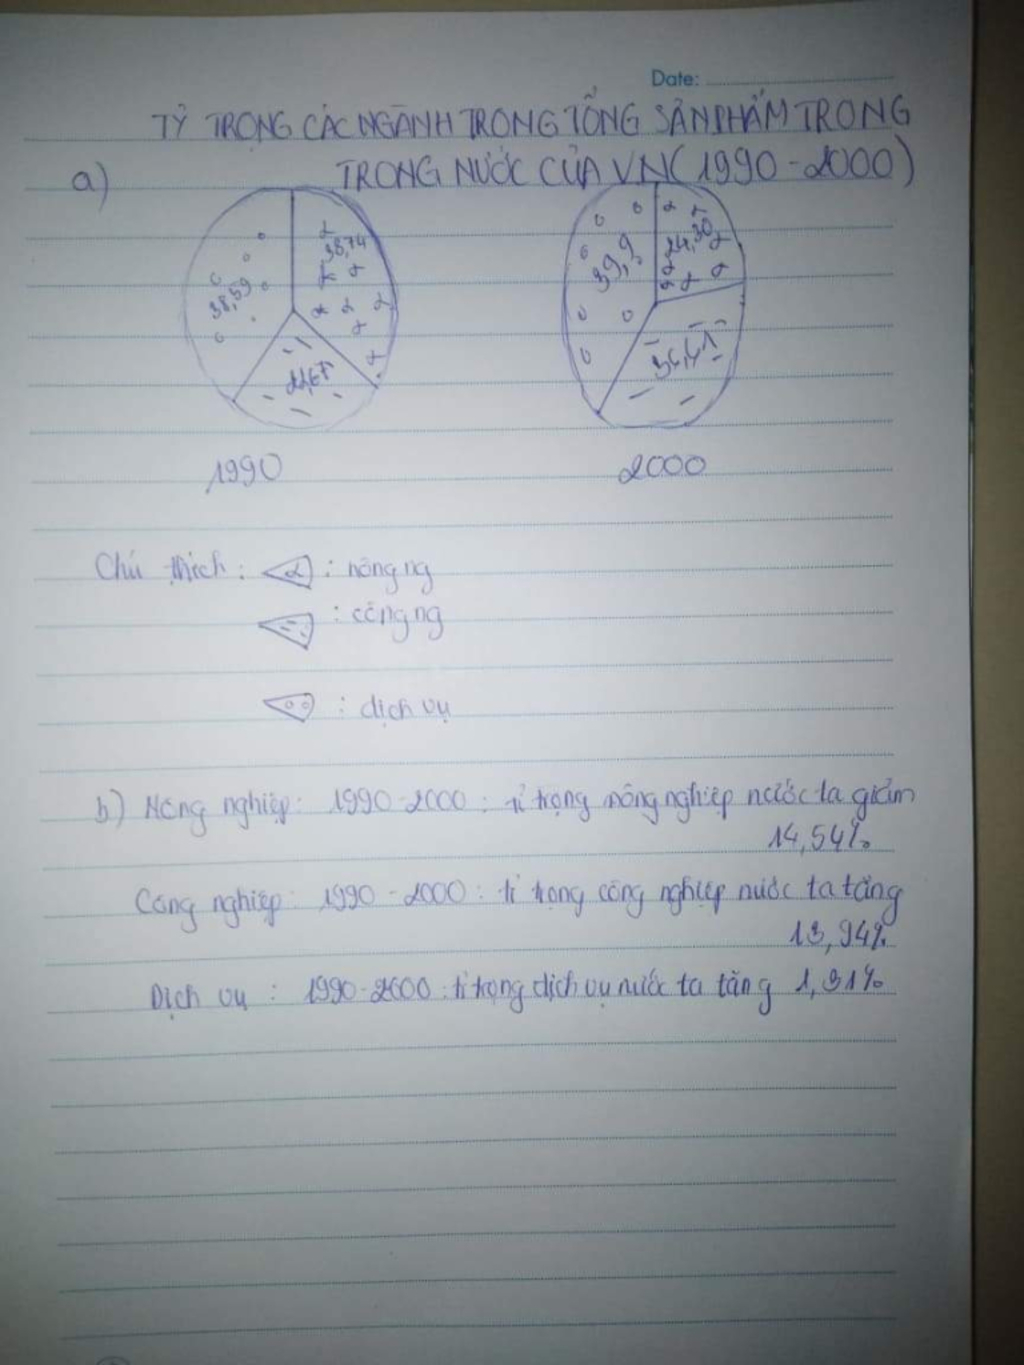 Date:
TỶ TRỌNG CÁC NGÀNH TRONG TỔNG SẢN PHẨM TRONG
TRONG NƯỚC CỦA VN (1990-2000)
a)
38,74
38,59
22,67
39,9
24,30
1990
2000
Chú thích: α : nông ng
: công ng
: dịch vụ
b) Nông nghiệp: 1990-2000: tỉ trọng nông nghiệp nước ta giảm
14,54%
Công nghiệp: 1990-2000: tỉ trọng công nghiệp nước ta tăng
13,94%
Dịch vụ: 1990-2000: tỉ trọng dịch vụ nước ta tăng 1,31%